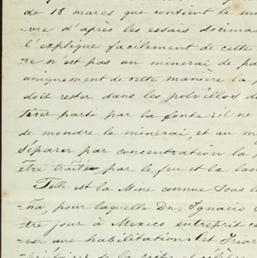 de 18 marcs que contient le m
-vre d'après les essais docima
l'explique facilement de cette
re n'est pas un minerai de pa
uniquement de cette manière la p
doit rester dans les polvillos d
tirer parte par la fonte; il ne
de moudre le minerai, et au m
séparer par consentration la
être traitée par le feu et la lan
Telle est la Mine connue sous l
-ña, pour laquelle Dn. Ignacio
-tre jour à Mexico entreprit c
-ser une habilitation; et Prior